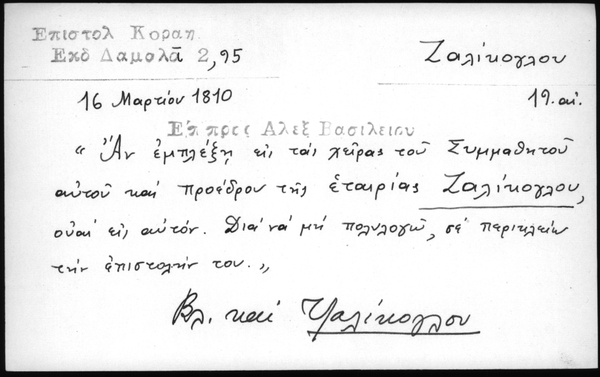 Επιστολ Κοραη
Εκδ Δαμολᾶ 2,95
Ζαλίκογλου
16 Μαρτίου 1810
19. αἰ.
Επ προς Αλεξ Βασιλειου
« Ἂν ἐμπλέξῃ εἰς τὰς χεῖρας τοῦ Συμμαθητοῦ
αὐτοῦ καὶ προέδρου τῆς ἑταιρίας Ζαλίκογλου,
οὐαὶ εἰς αὐτόν. Διὰ νὰ μὴ πολυλογῶ, σὲ περικλείω
τὴν ἐπιστολήν του.»
Βλ. καὶ Τσαλίκογλου